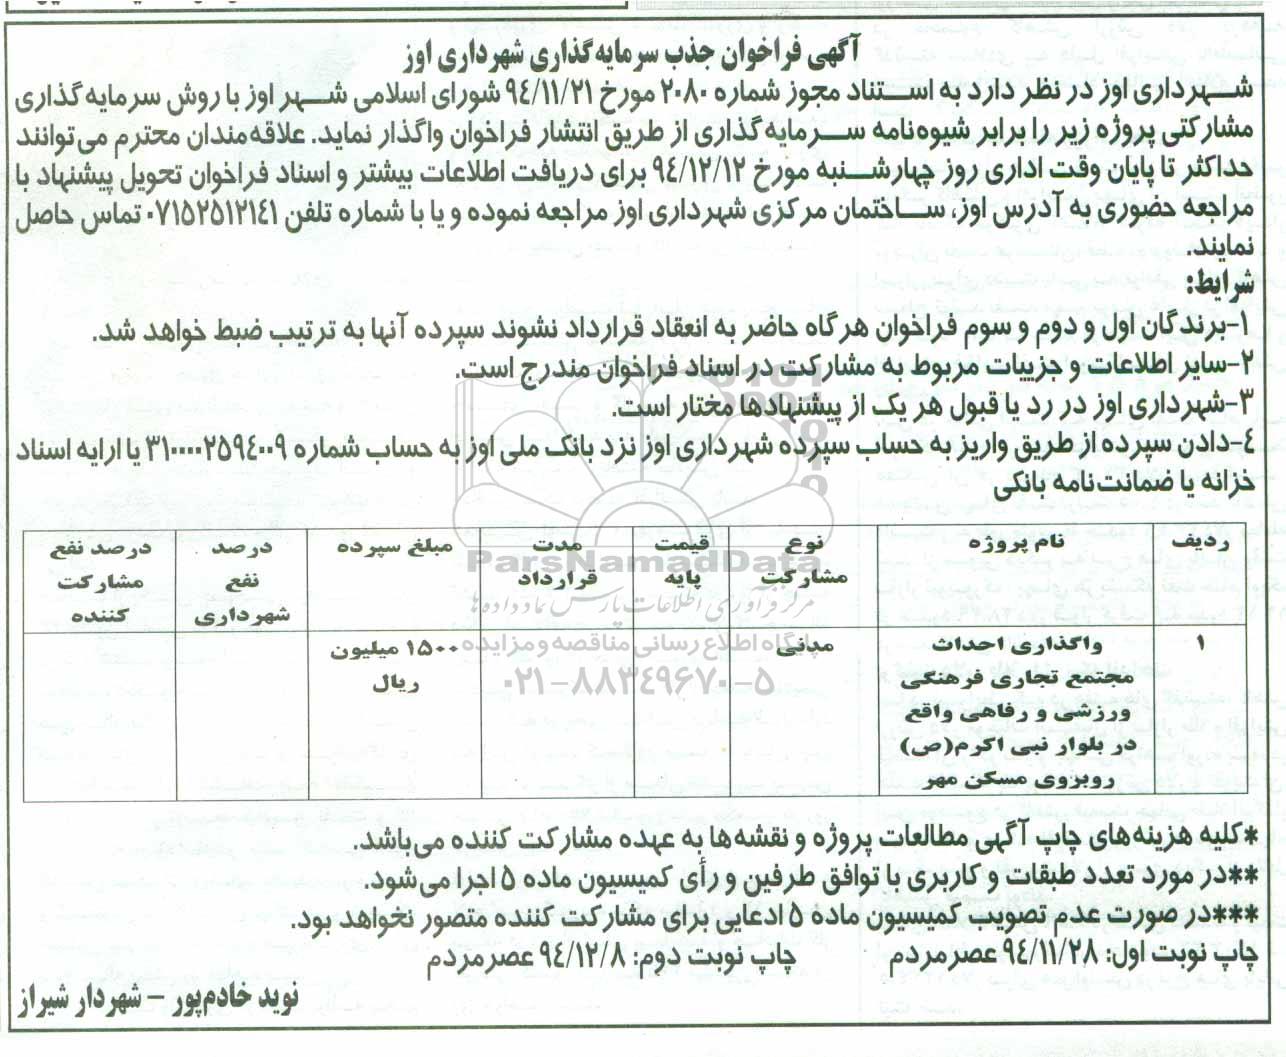 آگهی فراخوان جذب سرمایه‌گذاری شهرداری اوز
شهرداری اوز در نظر دارد به استناد مجوز شماره ۲۰۸۰ مورخ ۹۴/۱۱/۲۱ شورای اسلامی شهر اوز با روش سرمایه‌گذاری
مشارکتی پروژه زیر را برابر شیوه‌نامه سرمایه‌گذاری از طریق انتشار فراخوان واگذار نماید. علاقه‌مندان محترم می‌توانند
حداکثر تا پایان وقت اداری روز چهارشنبه مورخ ۹۴/۱۲/۱۲ برای دریافت اطلاعات بیشتر و اسناد فراخوان تحویل پیشنهاد با
مراجعه حضوری به آدرس اوز، ساختمان مرکزی شهرداری اوز مراجعه نموده و یا با شماره تلفن ۰۷۱۵۲۵۱۲۱۴۱ تماس حاصل
نمایند.
شرایط:
۱-برندگان اول و دوم و سوم فراخوان هرگاه حاضر به انعقاد قرارداد نشوند سپرده آنها به ترتیب ضبط خواهد شد.
۲-سایر اطلاعات و جزییات مربوط به مشارکت در اسناد فراخوان مندرج است.
۳-شهرداری اوز در رد یا قبول هر یک از پیشنهادها مختار است.
۴-دادن سپرده از طریق واریز به حساب سپرده شهرداری اوز نزد بانک ملی اوز به حساب شماره ۳۱۰۰۰۰۲۵۹۴۰۰۹ یا ارایه اسناد
خزانه یا ضمانت‌نامه بانکی
ردیف نام پروژه نوع مشارکت قیمت پایه مدت قرارداد مبلغ سپرده درصد نفع شهرداری درصد نفع مشارکت کننده
۱ واگذاری احداث مدنی ۱۵۰۰ میلیون
مجتمع تجاری فرهنگی ریال
ورزشی و رفاهی واقع
در بلوار نبی اکرم(ص)
روبروی مسکن مهر
ParsNamadData
مرکز فرآوری اطلاعات پارس نماد داده‌ها
پایگاه اطلاع رسانی مناقصه و مزایده
۰۲۱-۸۸۳۴۹۶۷۰-۵
*کلیه هزینه‌های چاپ آگهی مطالعات پروژه و نقشه‌ها به عهده مشارکت کننده می‌باشد.
**در مورد تعدد طبقات و کاربری با توافق طرفین و رأی کمیسیون ماده ۵ اجرا می‌شود.
***در صورت عدم تصویب کمیسیون ماده ۵ ادعایی برای مشارکت کننده متصور نخواهد بود.
چاپ نوبت اول: ۹۴/۱۱/۲۸ عصر مردم چاپ نوبت دوم: ۹۴/۱۲/۸ عصر مردم
نوید خادم‌پور – شهردار شیراز